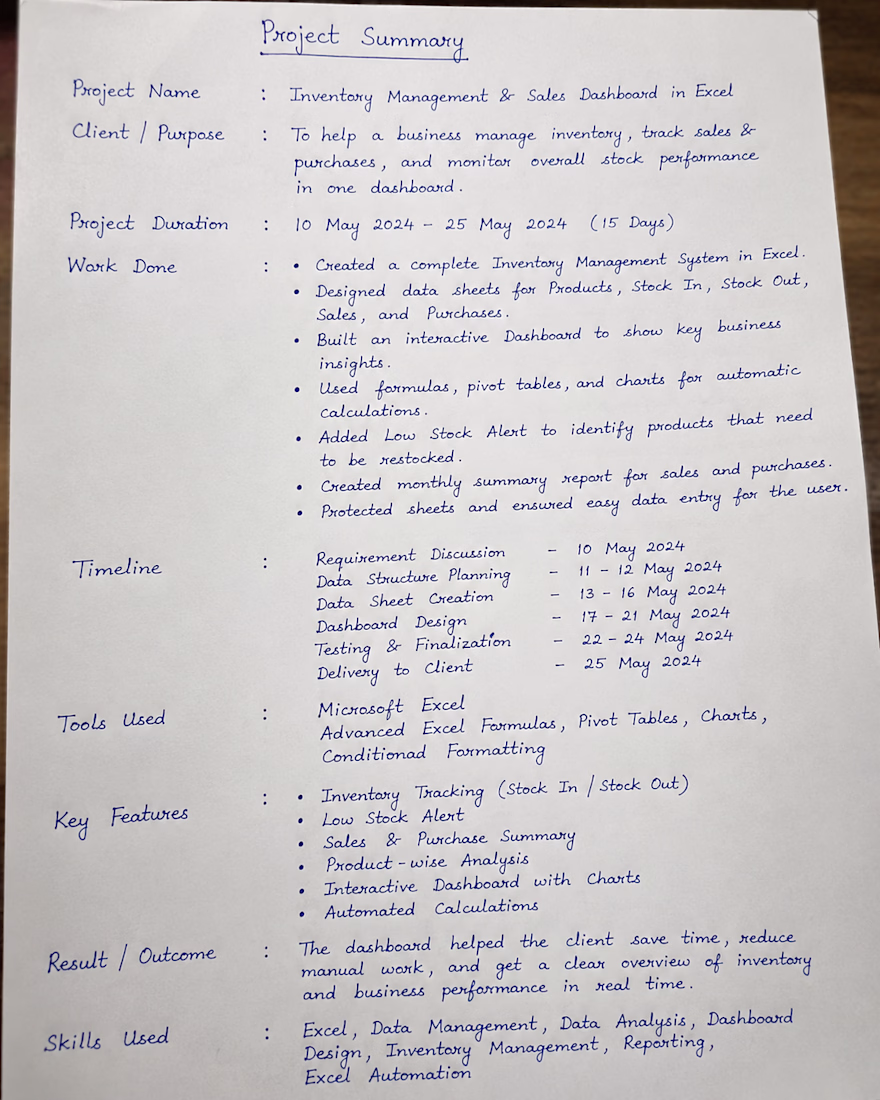 Project Summary
Project Name : Inventory Management & Sales Dashboard in Excel
Client / Purpose : To help a business manage inventory, track sales &
purchases, and monitor overall stock performance
in one dashboard.
Project Duration : 10 May 2024 – 25 May 2024 (15 Days)
Work Done : • Created a complete Inventory Management System in Excel.
• Designed data sheets for Products, Stock In, Stock Out,
Sales, and Purchases.
• Built an interactive Dashboard to show key business
insights.
• Used formulas, pivot tables, and charts for automatic
calculations.
• Added Low Stock Alert to identify products that need
to be restocked.
• Created monthly summary report for sales and purchases.
• Protected sheets and ensured easy data entry for the user.
Timeline : Requirement Discussion – 10 May 2024
Data Structure Planning – 11 – 12 May 2024
Data Sheet Creation – 13 – 16 May 2024
Dashboard Design – 17 – 21 May 2024
Testing & Finalization – 22 – 24 May 2024
Delivery to Client – 25 May 2024
Tools Used : Microsoft Excel
Advanced Excel Formulas, Pivot Tables, Charts,
Conditionad Formatting
Key Features : • Inventory Tracking (Stock In / Stock Out)
• Low Stock Alert
• Sales & Purchase Summary
• Product-wise Analysis
• Interactive Dashboard with Charts
• Automated Calculations
Result / Outcome : The dashboard helped the client save time, reduce
manual work, and get a clear overview of inventory
and business performance in real time.
Skills Used : Excel, Data Management, Data Analysis, Dashboard
Design, Inventory Management, Reporting,
Excel Automation